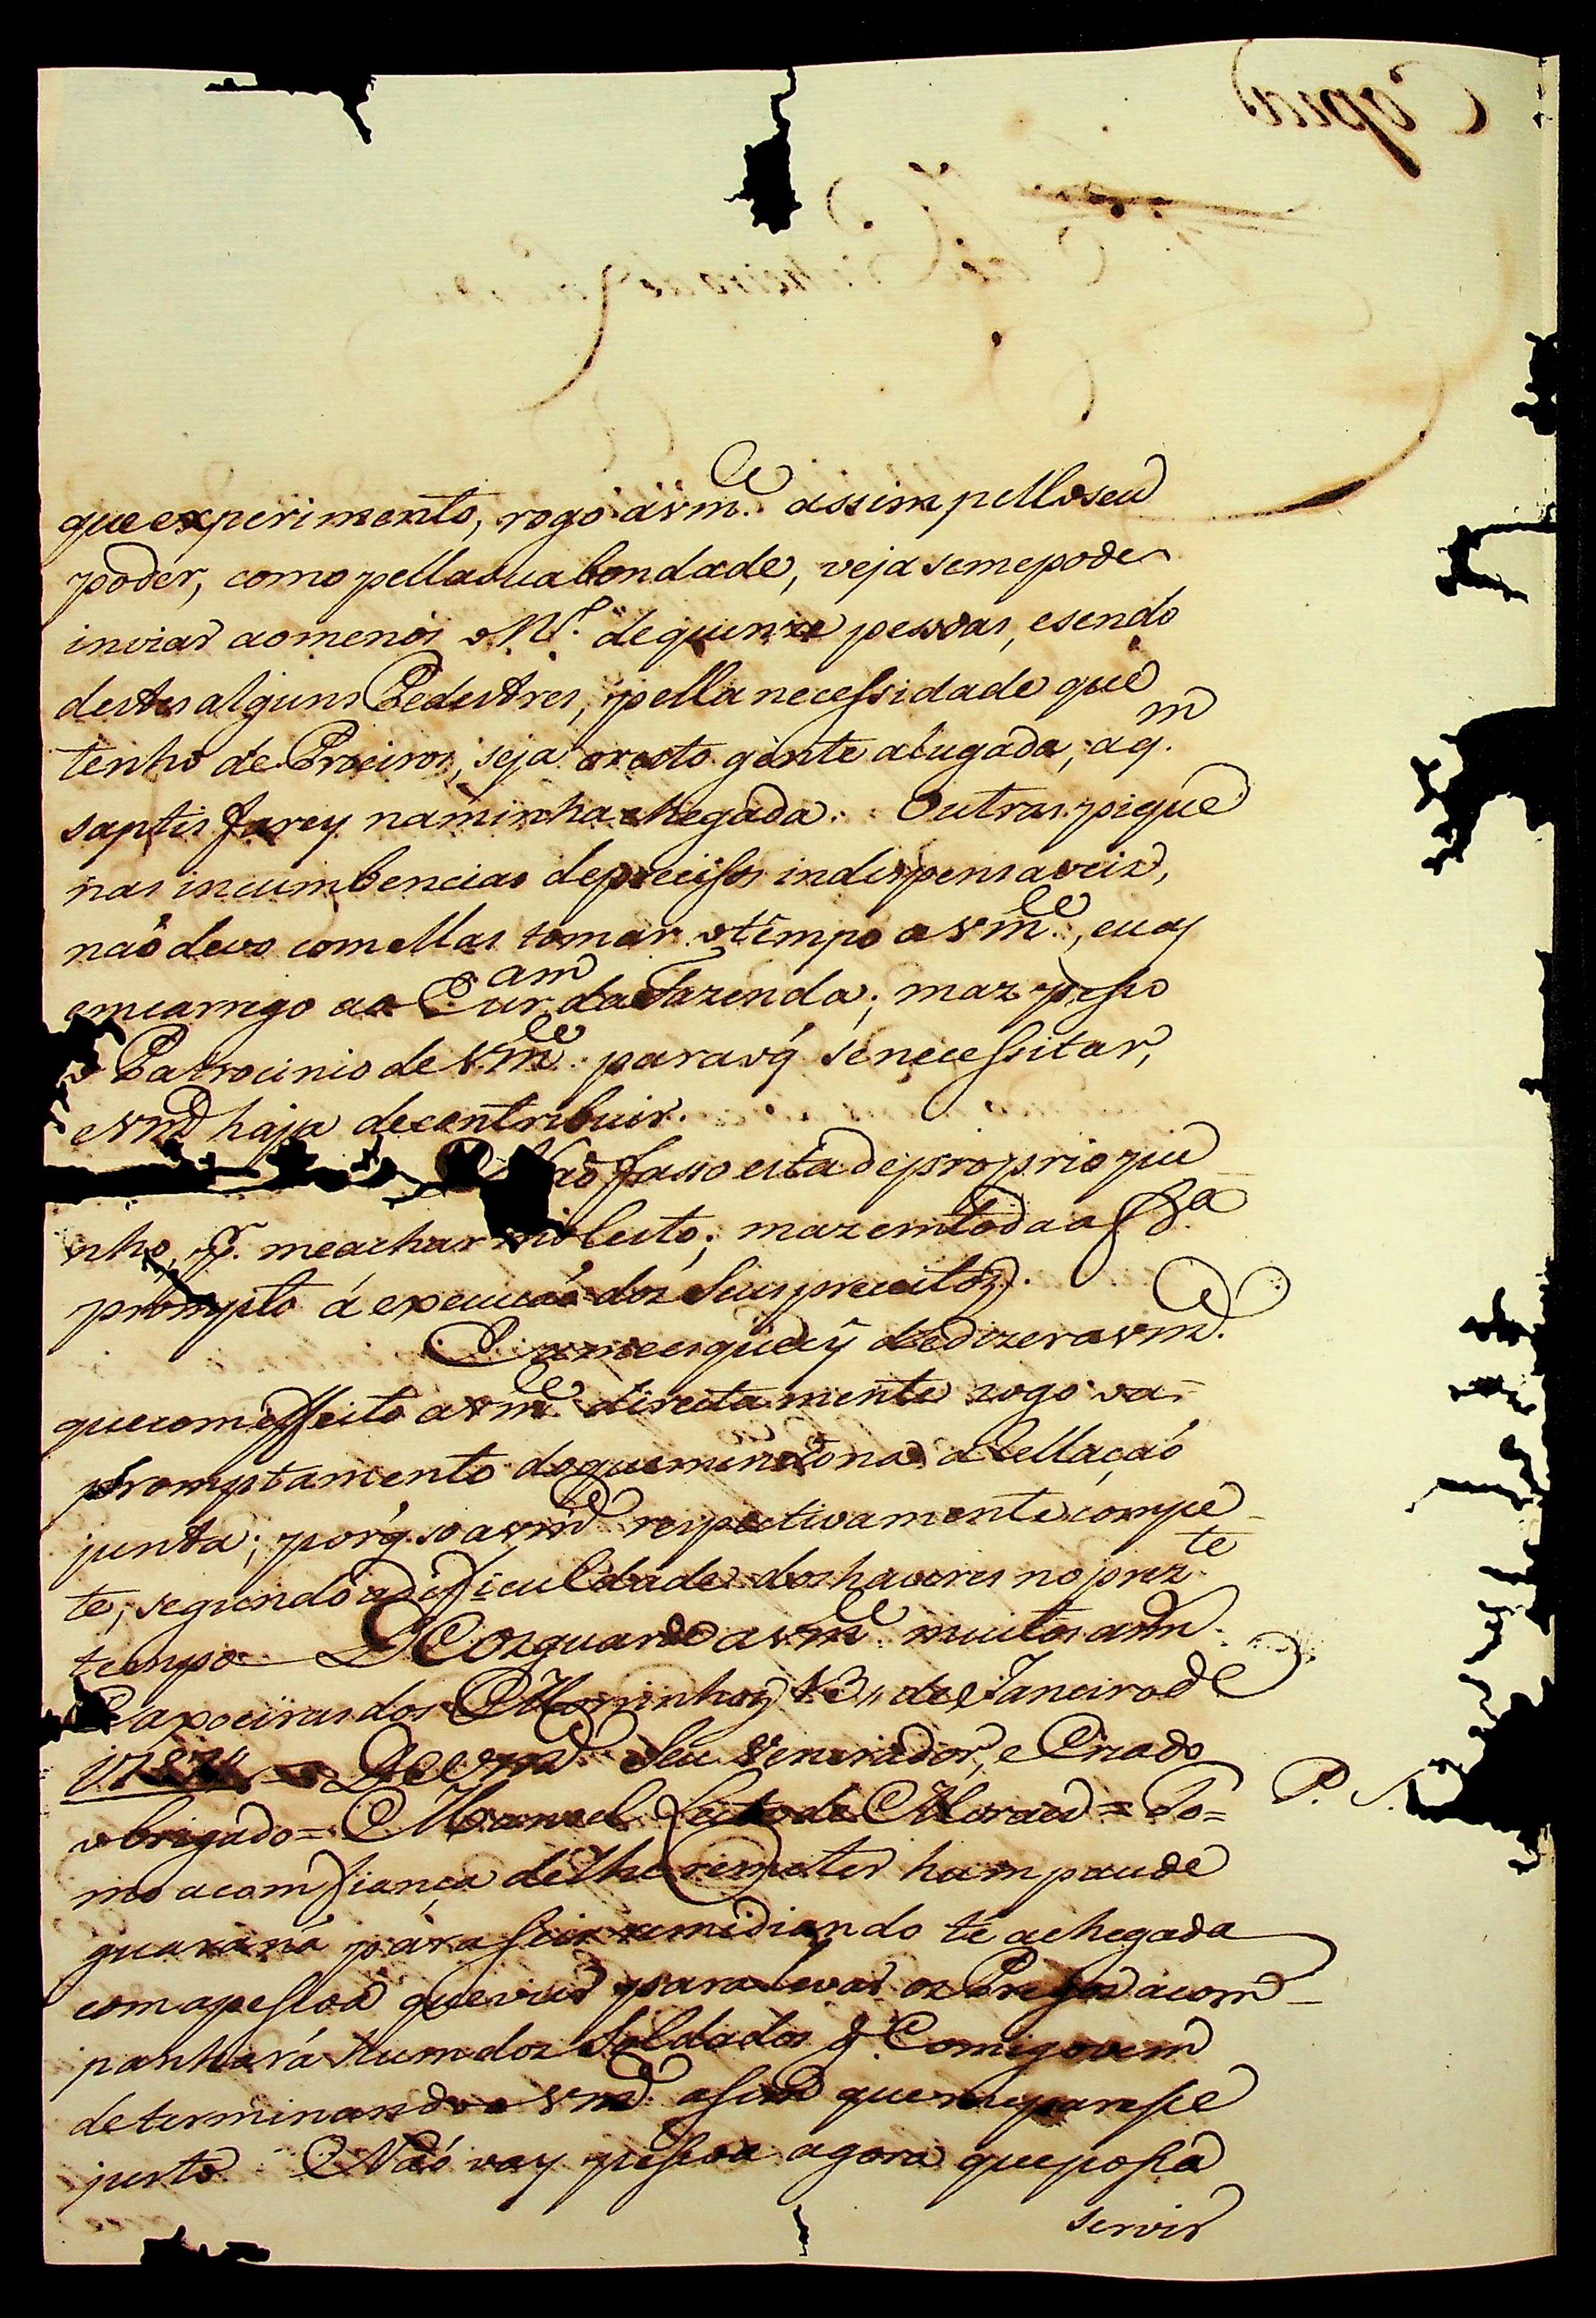 que experimento, rogo a vm.ce assim pello seu
poder, como pella sua bondade, veja se me pode
inviar ao menos o N.º de quinze pessoas, e sendo
destes alguns Pedestres, pella necessidade que
tenho de Proeiros, seja o resto gente alugada, a q.m
saptisfarey na minha chegada. Outras pique
nas incumbencias de precisos indispensaveis,
não devo com ellas tomar o tempo a vm.ce, eu as
emcarrego ao Cur.am da Fazenda; mas pesso
o Patrocinio de Vm.ce para o q̃ se necessitar,
e vm.ce haja de contribuir.
Não fasso esta de proprio pu
nho, p.r me achar molesto; maz em toda a
prompto á execucáo dos seus preceitos.
de dizer a vm.ce
que com effeito a vm.ce directamente rogo o a-
promptamento do que menciona a Rellação
junta; porq̃ so a vm.ce respectivamente compe
te, segundo a dificuldade dos haveres no prez.te
tempo D.s guarde a vm.ce muitos ann.
Capoeiras dos Morrinhos 13 de Janeiro de
De Vm.ce Seu Venerador, e Criado
obrigado = Manoel Leite de Moraes = To= P. S.
mo a comfiança de lhe remeter hum pau de
guaraná para se ir remediando té a chegada
com a pessoa que vier para levar os Prezos acom
panhará hum dos Soldados q̃ Comigo vem
determinando o Vm.ce assim que me paresse
justo. Náo vay pessoa agora que possa
servir
Copia